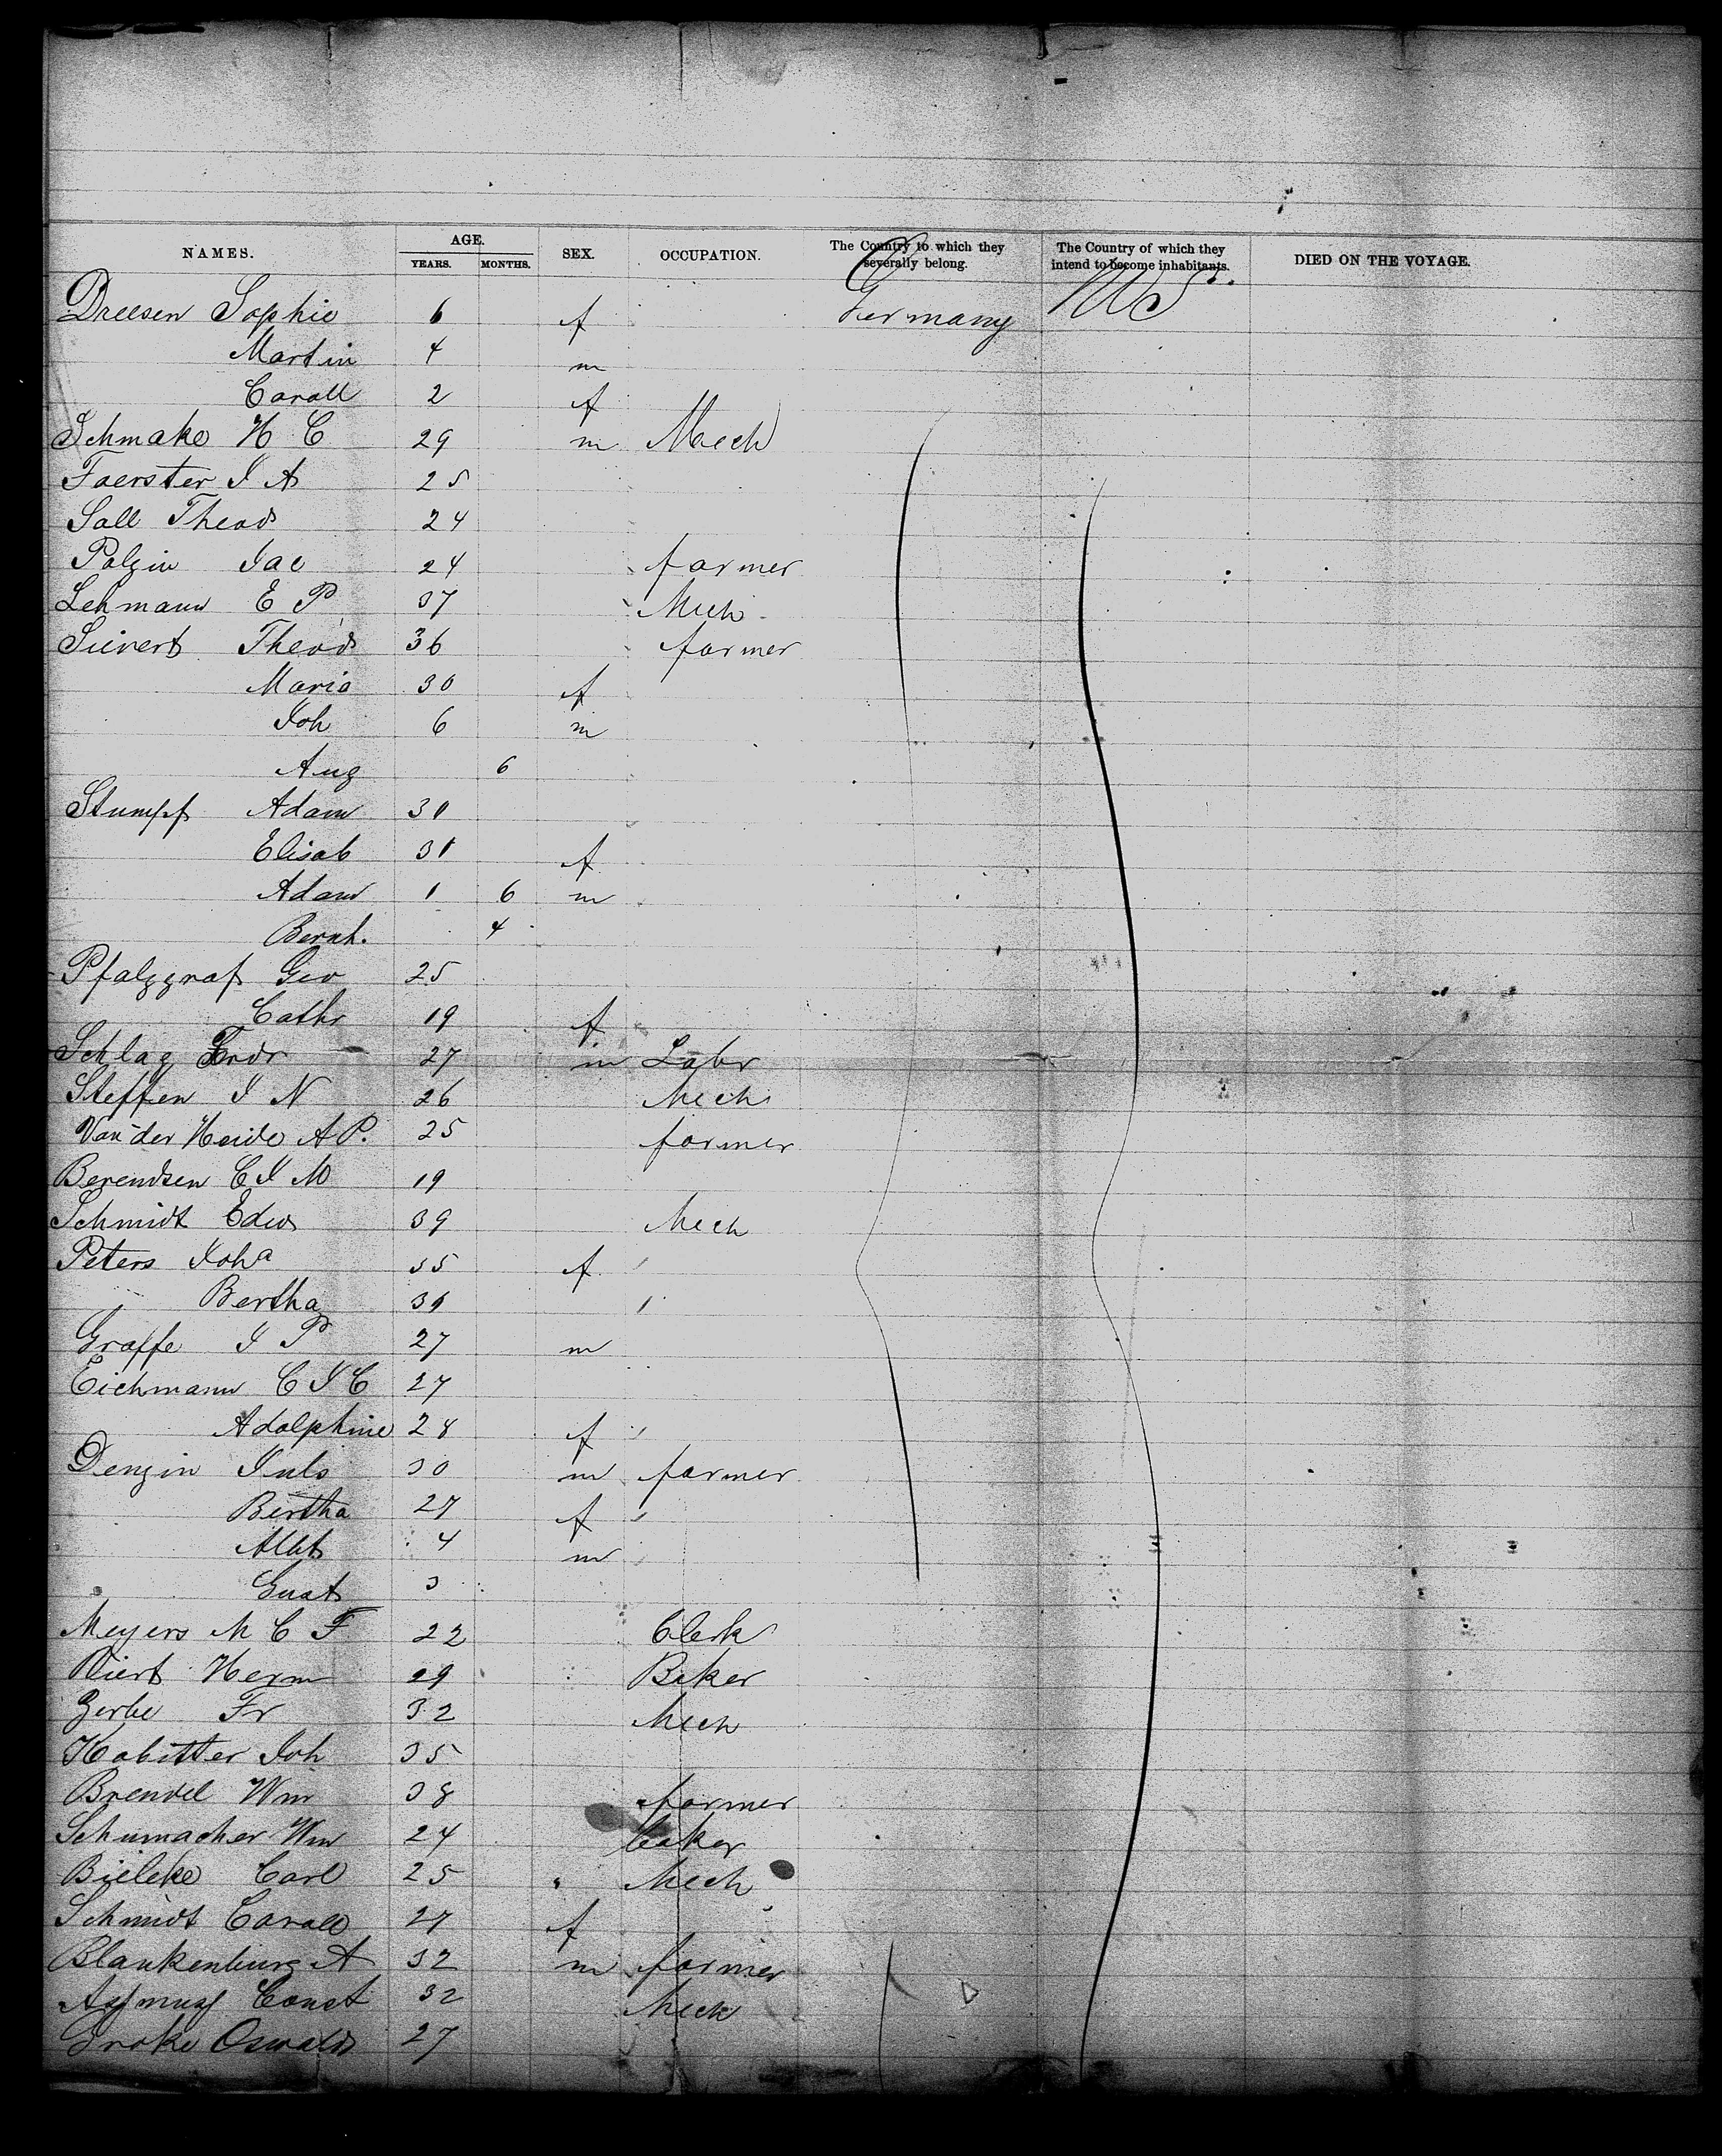 NAMES. AGE. YEARS. MONTHS. SEX. OCCUPATION. The Country to which they severally belong. The Country of which they intend to become inhabitants. DIED ON THE VOYAGE.
Dreesen Sophie 6 f Germany US
Martin 4 m
Caroll 2 f
Schmake H C 29 m Mech
Foerster J A 25
Sall Theod 24
Polzin Jac 24 farmer
Lehmann E P 37 Mech
Sievert Theod 36 farmer
Maria 30 f
Joh 6 m
Aug 6
Stumpf Adam 31
Elisab 31 f
Adam 1 6 m
Bernh. 4
Pfalzgraf Geo 25
Cathr 19 f
Schlag Fredr 27 m Labr
Steffen J N 26 Mech
Van der Heide A P. 25 farmer
Berendsen C J M 19
Schmidt Edw 39 Mech
Peters Joha 35 f
Bertha 31
Graffe J P 27 m
Eichmann C J C 27
Adolphine 28 f
Denzin Juls 30 m farmer
Bertha 27 f
Albt 4 m
Gust 3
Meyers M C F 22 Clerk
Herm 29 Baker
Zerbe Fr 32 Mech
Habitter Joh 35
Brendel Wm 38 farmer
Schumacher Wm 24 baker
Bieleke Carl 25 Mech
Schmidt Caroll 27 f
Blankenburg A 32 m farmer
Assmuss Const 32 Mech
Groke Oswald 27